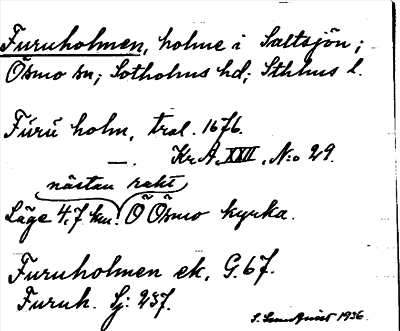 Furuholmen, holme i Saltsjön;
Ösmo sn; Sotholms hd; Sthlms l.
Fúrŭ holm, tral. 1676.
—„—. Kr A, XXII, N:o 29.
nästan rakt
Läge 4,7 km. Ö Ösmo kyrka.
Furuholmen ek. G. 67.
Furuh. Sj: 237.
S. 1936.